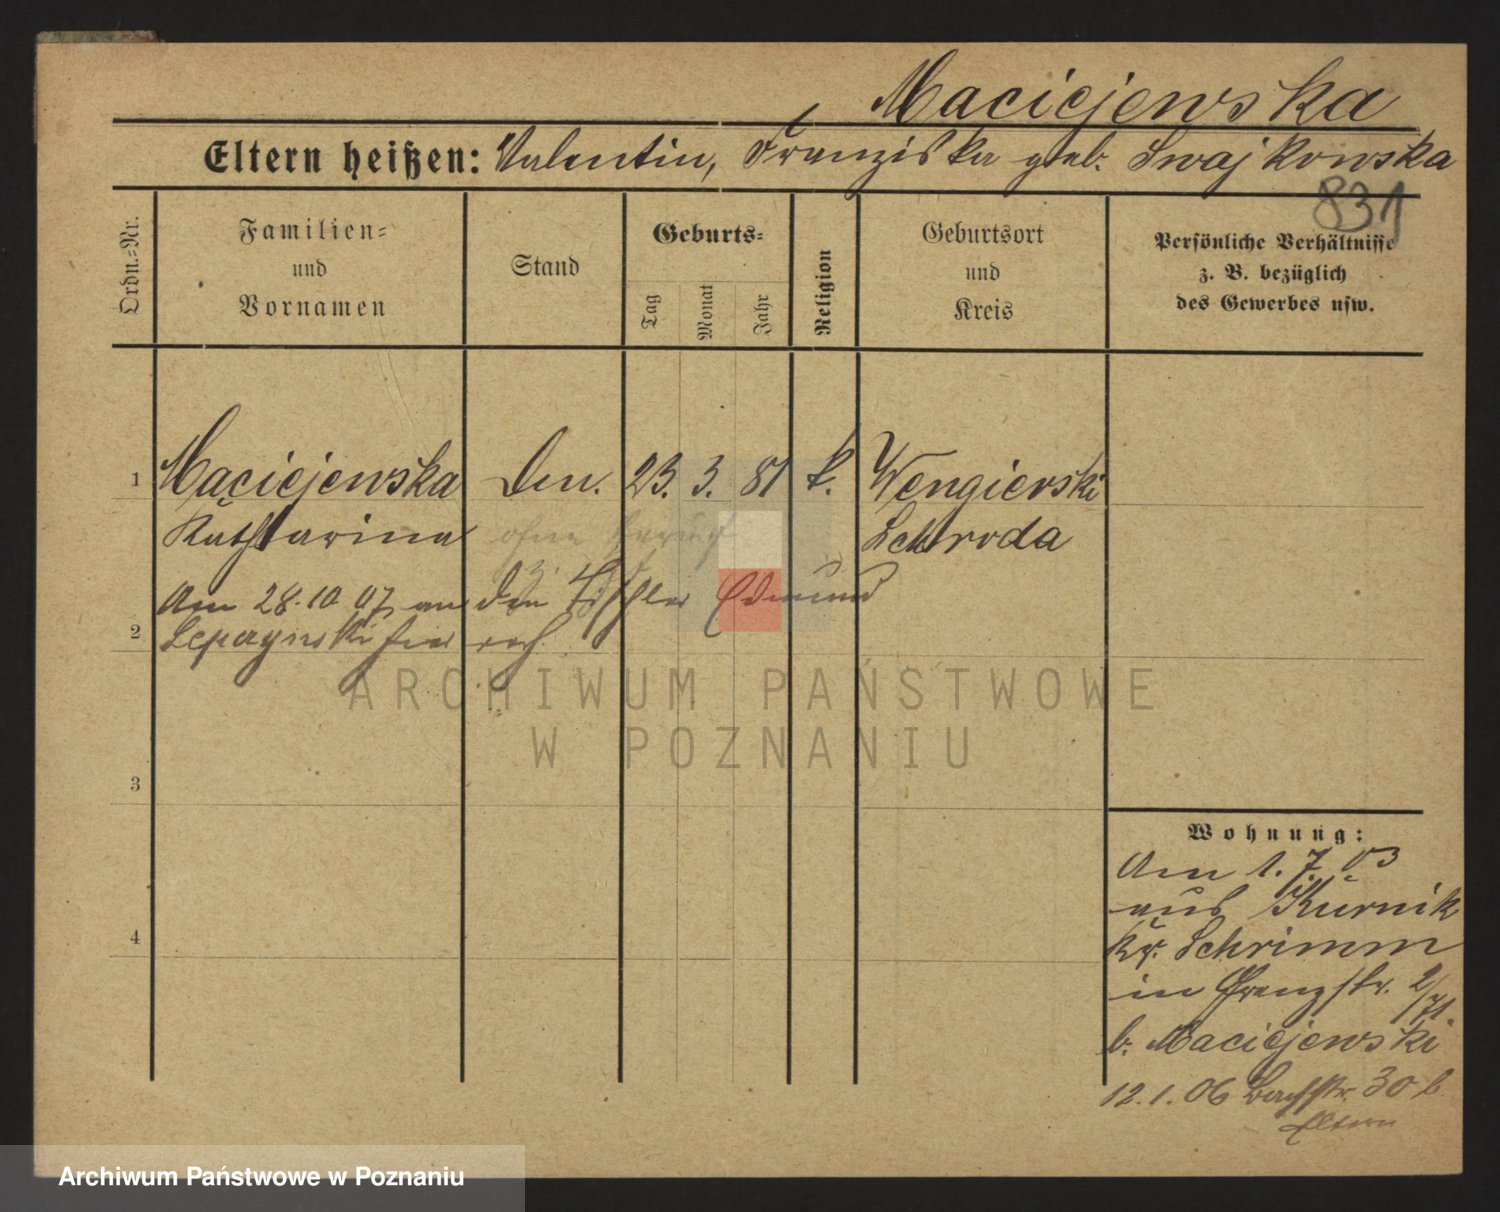 Maciejewska
Eltern heißen: Valentin, Franziska geb. Swajkowska
831
Ordn.-Nr.
Familien- und Vornamen
Stand
Geburts-
Tag
Monat
Jahr
Religion
Geburtsort und Kreis
Persönliche Verhältnisse z. B. bezüglich des Gewerbes usw.
1 Maciejewska Den. 23. 3. 81 k. Wengierski
Katharina ohne Beruf Schroda
Am 28.10 07 an den Tischler Edmund
2
3
4
Wohnung:
Am 1. 7. 03
aus Kurnik
Kr. Schrimm
in Grenzstr. 2/71.
b. Maciejewski
12. 1. 06 Bachstr. 30 b.
Eltern
ARCHIWUM PAŃSTWOWE
W POZNANIU
Archiwum Państwowe w Poznaniu